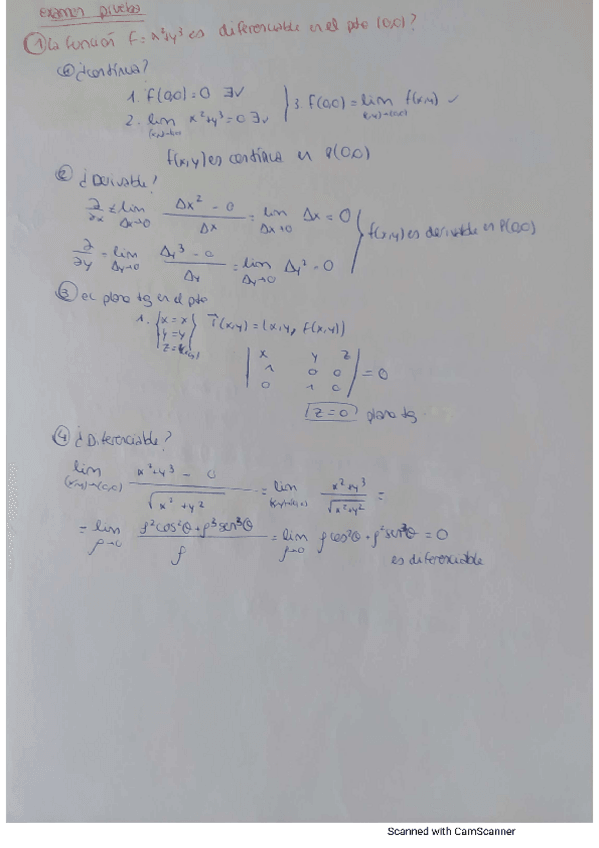 examen pruebas
① La función f = x²+y³ es diferenciable en el pto (0,0)?
① ¿continua?
1. f(0,0) = 0 ∃✓
2. lim x²+y³ = 0 ∃✓
(x,y)→(0,0)
3. f(0,0) = lim f(x,y) ✓
(x,y)→(0,0)
f(x,y) es continua en P(0,0)
② ¿Derivable?
∂/∂x = lim Δx→0 (Δx² - 0)/Δx = lim Δx→0 Δx = 0
∂/∂y = lim Δy→0 (Δy³ - 0)/Δy = lim Δy→0 Δy² = 0
f(x,y) es derivable en P(0,0)
③ el plano tg en el pto
1. { x = x
y = y
z = f(x,y) } T(x,y) = (x,y, f(x,y))
| x y z |
| 1 0 0 | = 0
| 0 1 0 |
z = 0 plano tg.
④ ¿Diferenciable?
lim (x,y)→(0,0) (x²+y³ - 0)/√(x²+y²) = lim (x,y)→(0,0) (x²+y³)/√(x²+y²) =
= lim ρ→0 (ρ²cos²θ + ρ³sen³θ)/ρ = lim ρ→0 ρcos²θ + ρ²sen³θ = 0
es diferenciable
Scanned with CamScanner